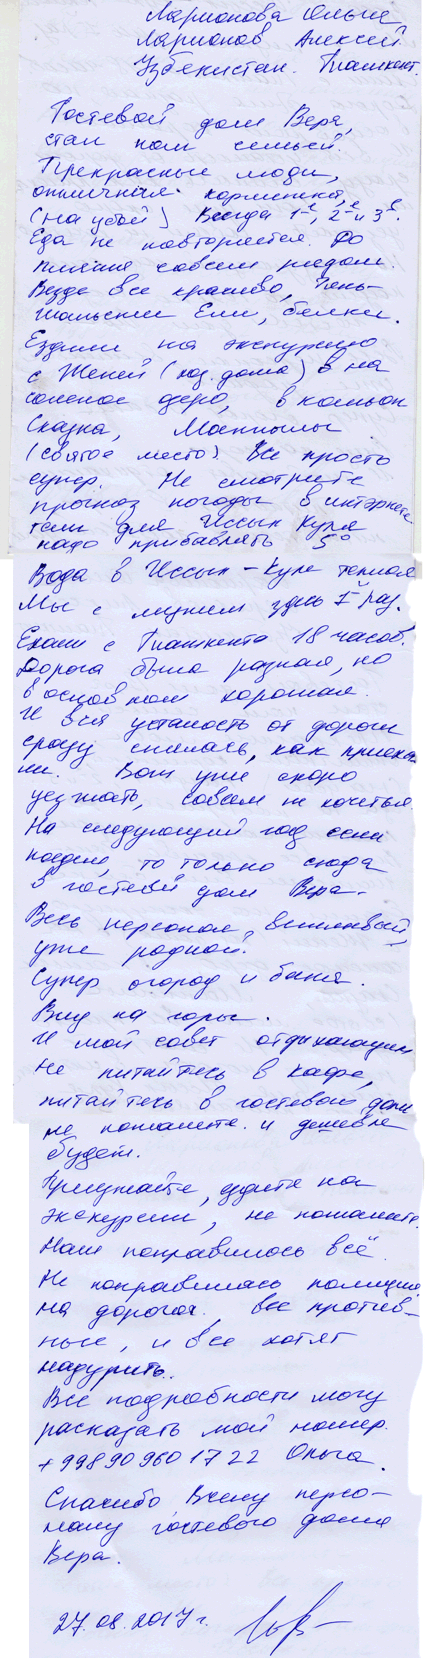 Ларионова Ольга
Ларионов Алексей
Узбекистан. Ташкент.
Гостевой дом Вера,
стал нам семьёй.
Прекрасные люди,
отличная кормежка,
(на убой) Всегда 1-е, 2-е и 3-е.
Еда не повторяется. До
пляжа совсем рядом.
Везде все красиво, Тянь-
шаньские Ели, белки.
Ездили на экскурсию
с Женей (хоз. дома) в на
соленое озеро, в каньон
Сказка,
(святое место). Все просто
супер. Не смотрите
прогноз погоды в интерне
тем для Иссык Куля
надо прибавлять 5°
Вода в Иссык-Куле теплая
Мы с мужем здесь 1-й раз.
Ехали с Ташкента 18 часов.
Дорога была разная, но
в основном хорошая.
И вся усталость от дороги
сразу снялась, как приеха
ли. Вот уже скоро
уезжать, совсем не хочется.
На следующий год если
поедем, то только сюда
в гостевой дом Вера.
Весь персонал, вежливый,
уже родной.
Супер огород и баня.
Вид на горы.
И мой совет отдыхающим
Не питайтесь в кафе,
питайтесь в гостевом доме
не пожалеете. и дешевле
будет.
Приезжайте, ездите на
экскурсии, не пожалеете.
Нам понравилось всё.
Не понравилась полиция
на дорогах. все против-
ные, и все хотят
надурить..
Все подробности могу
расказать мой номер.
+998 90 960 17 22 Ольга.
Спасибо Всему персо-
налу гостевого дома
Вера.
27.08.2017 г.